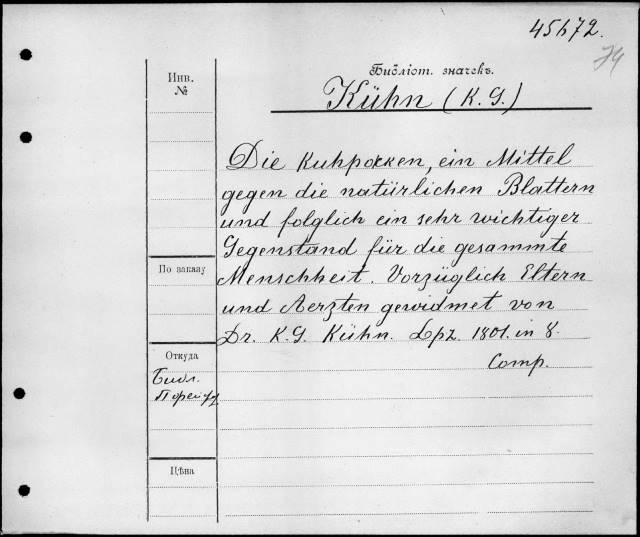 45672.
74
Инв.
№
Библіот. значекъ.
Kühn (K. G.)
Die Kuhpocken, ein Mittel
gegen die natürlichen Blattern
und folglich ein sehr wichtiger
Gegenstand für die gesammte
Menschheit. Vorzüglich Eltern
und Aerzten gewidmet von
Dr. K. G. Kühn. Lpz. 1801. in 8.
Comp.
По заказу
Откуда
Библ.
Цѣна